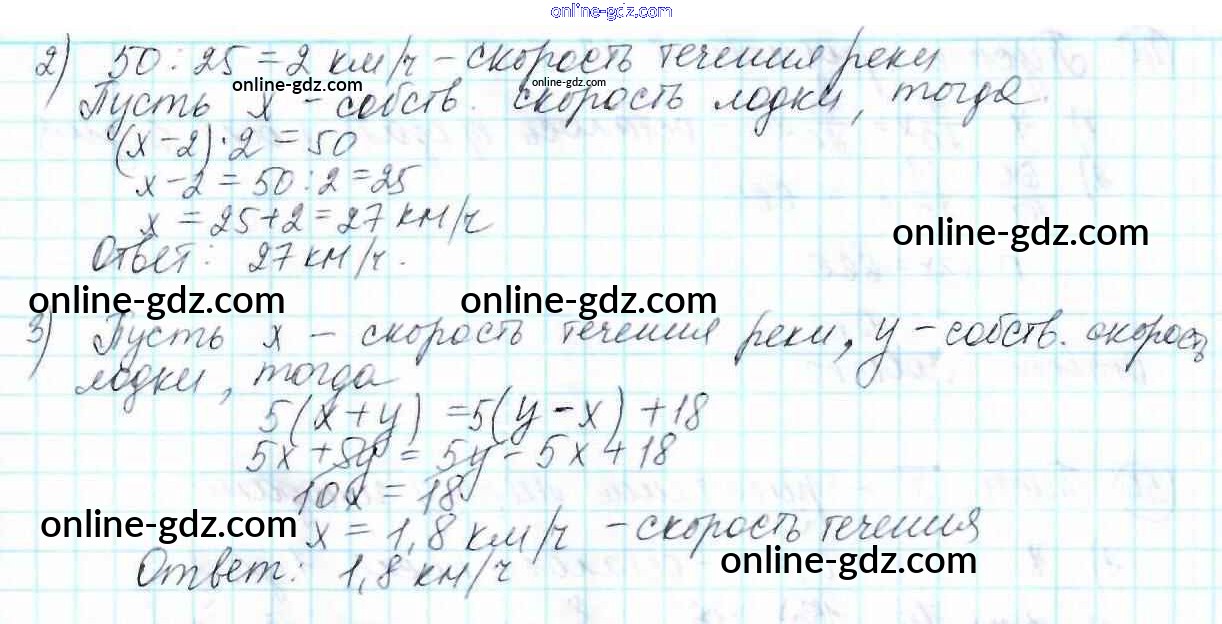 online-gdz.com
2) 50 : 25 = 2 км/ч – скорость течения реки
online-gdz.com online-gdz.com
Пусть х – собств. скорость лодки, тогда
(х – 2) · 2 = 50
х – 2 = 50 : 2 = 25
х = 25 + 2 = 27 км/ч
online-gdz.com
Ответ: 27 км/ч.
online-gdz.com online-gdz.com
3) Пусть х – скорость течения реки, у – собств. скорость
лодки, тогда
5(х + у) = 5(у – х) + 18
5х + 5у = 5у – 5х + 18
10х = 18
online-gdz.com
х = 1,8 км/ч – скорость течения
online-gdz.com
Ответ: 1,8 км/ч